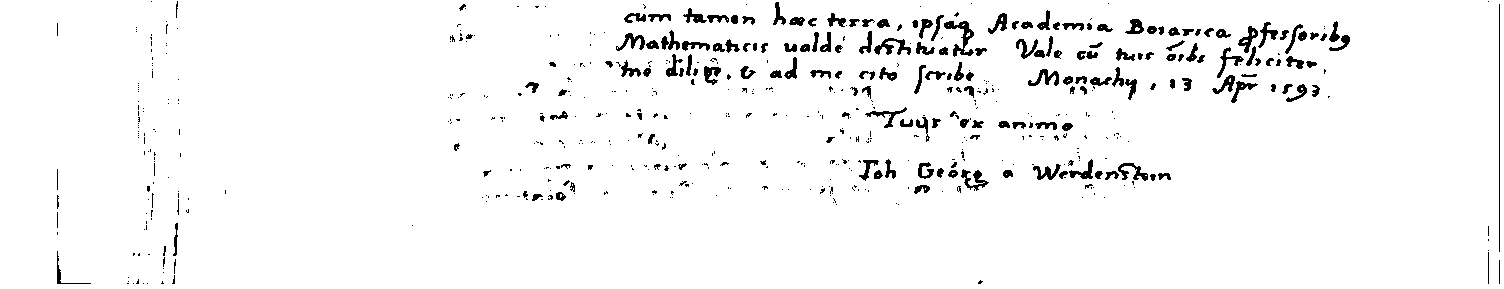 cum tamen hæc terra, ipsaq̃ Academia Boiarica ꝓfessoribꝰ
Mathematicis ualde destituatur Vale cū tuis oībs feliciter
me dilige, & ad me cito scribe Monachÿ, 13 Apr̄ 1593
Tuus ex animo
Joh Georg a Werdenstein